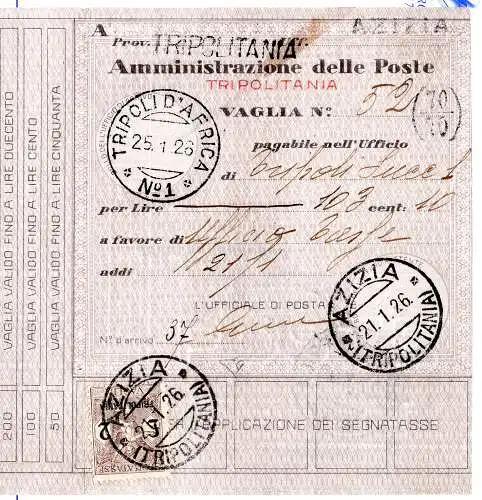 A
AZIZIA
Prov. TRIPOLITANIA Uff.
Amministrazione delle Poste
TRIPOLITANIA
VAGLIA N.º 52
70
10
TRIPOLI D'AFRICA
25.1.26
* Nº1 *
pagabile nell'Ufficio
di Tripoli Succ 1
per Lire 103 cent: 10
a favore di Ufficio Tasse
addì 21/1
L'UFFICIALE DI POSTA
Nº d'arrivo 37
AZIZIA
21.1.26.
* (TRIPOLITANIA)
AZIZIA
1.26
* (TRIPOLITANIA)
APPLICAZIONE DEI SEGNATASSE
200 VAGLIA VALIDO FINO A LIRE DUECENTO
100 VAGLIA VALIDO FINO A LIRE CENTO
50 VAGLIA VALIDO FINO A LIRE CINQUANTA